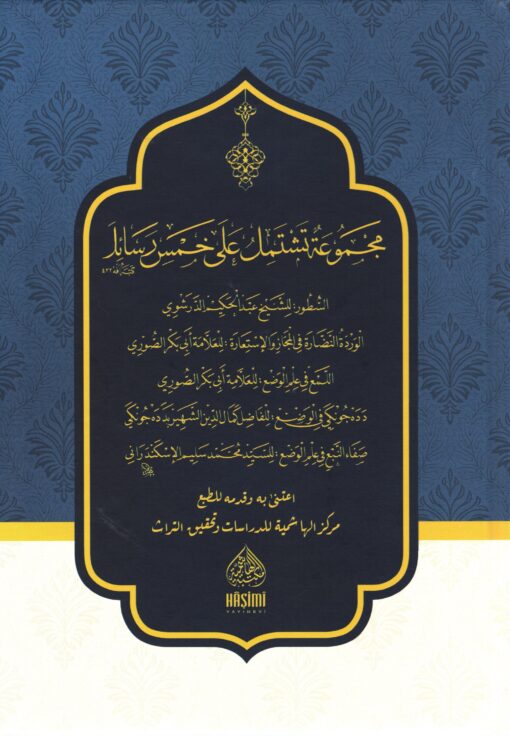 مَجْمُوعَةٌ تَشْتَمِلُ عَلَى خَمْسِ رَسَائِلَ
السُّطُور: لِلشَّيْخِ عَبْدِ الْحَكِيمِ الدَّرشَوِي
الْوَرْدَةُ النَّضَّارَة فِي الْمَجَازِ وَالْاِسْتِعَارَة: لِلْعَلَّامَةِ أَبِي بَكْرٍ الصُّورِي
النَّبْعُ فِي عِلْمِ الْوَضْعِ: لِلْعَلَّامَةِ أَبِي بَكْرٍ الصُّورِي
دَدَه جُونكِي فِي الْوَضْعِ: لِلْفَاضِلِ كَمَالِ الدِّينِ الشَّهِيرِ بِدَدَه جُونكِي
صَفَاءُ النَّبْعِ فِي عِلْمِ الْوَضْعِ: لِلسَّيِّدِ مُحَمَّدْ سَلِيمِ الْإِسْكَنْدَرَانِي
اعتنى به وقدمه للطبع
مركز الهاشمية للدراسات وتحقيق التراث
HÂŞİMİ
YAYINEVİ